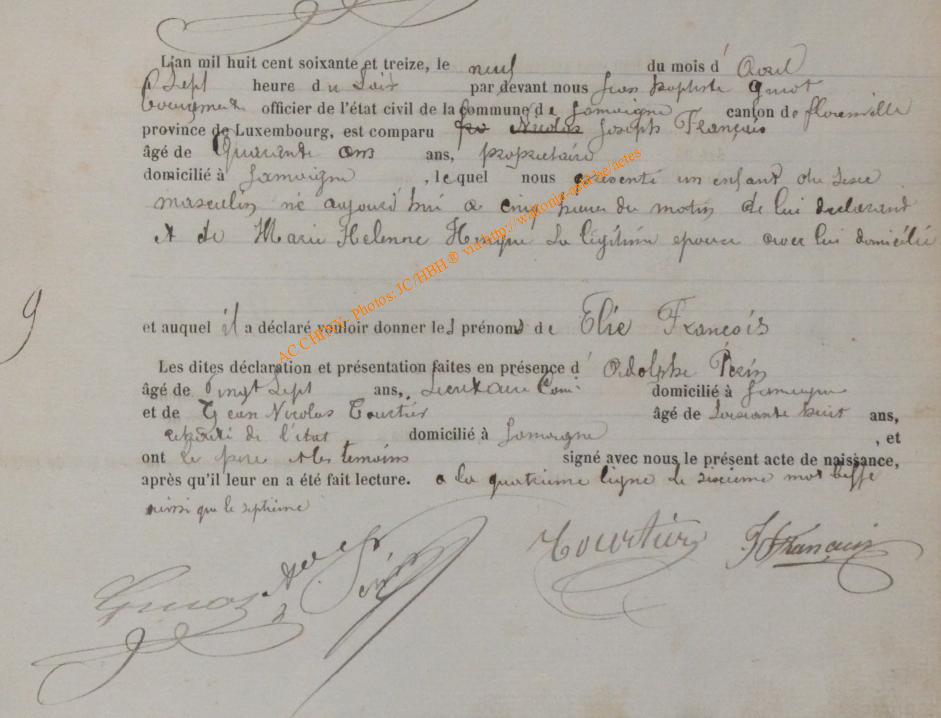 L'an mil huit cent soixante et treize, le neuf du mois d' Avril
a Sept heure du Soir par devant nous Jean Baptiste Guiot
bourgmestre officier de l'état civil de la Commune de Jamoigne canton de florenville
province de Luxembourg, est comparu Nicolas Joseph François
âgé de Quarante ans ans, propriétaire
domicilié à Jamoigne , lequel nous a présenté un enfant du sexe
masculin né aujourd'hui a cinq heures du matin de lui declarant
et de Marie Helenne sa légitime epouse avec lui domiciliée
9
et auquel il a déclaré vouloir donner les prénoms de Elie François
Les dites déclaration et présentation faites en présence d' Adolphe Périn
âgé de Vingt Sept ans, Secretaire Com: domicilié à Jamoigne
et de Jean Nicolas Tourtier âgé de Soixante huit ans,
de l'état domicilié à Jamoigne , et
ont le père et les temoins signé avec nous le présent acte de naissance,
après qu'il leur en a été fait lecture. a la quatrieme ligne le sixieme mot biffé
ainsi que le septieme
Guiot Ad Périn Tourtier J François
AC CHINY- Photos: JC/HBH ® via http://www.